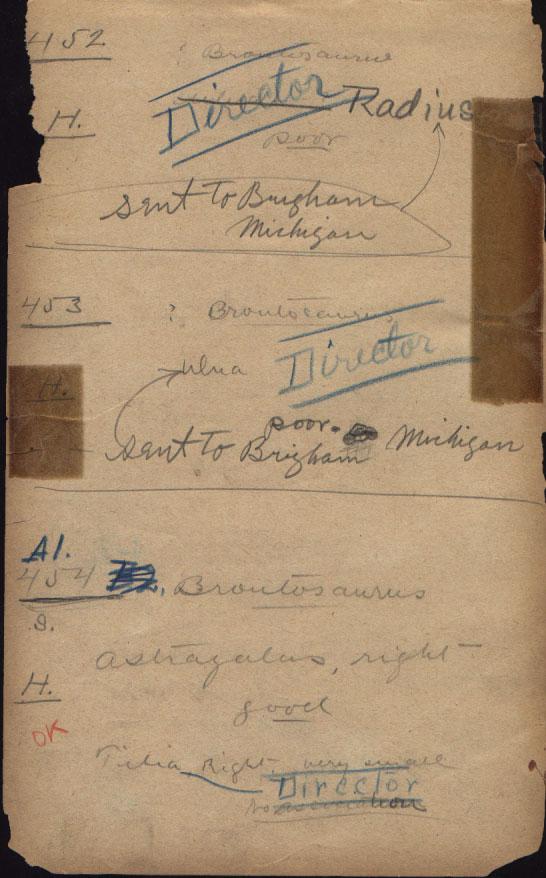 452
? Brontosaurus
H.
Director Radius
poor
sent to Brigham
Michigan
453
? Brontosaurus
Ulna Director
H.
poor.
sent to Brigham Michigan
A1.
454 Brontosaurus
S.
Astragalus, right
H.
good
OK
Tibia Right, very small
Director
no association